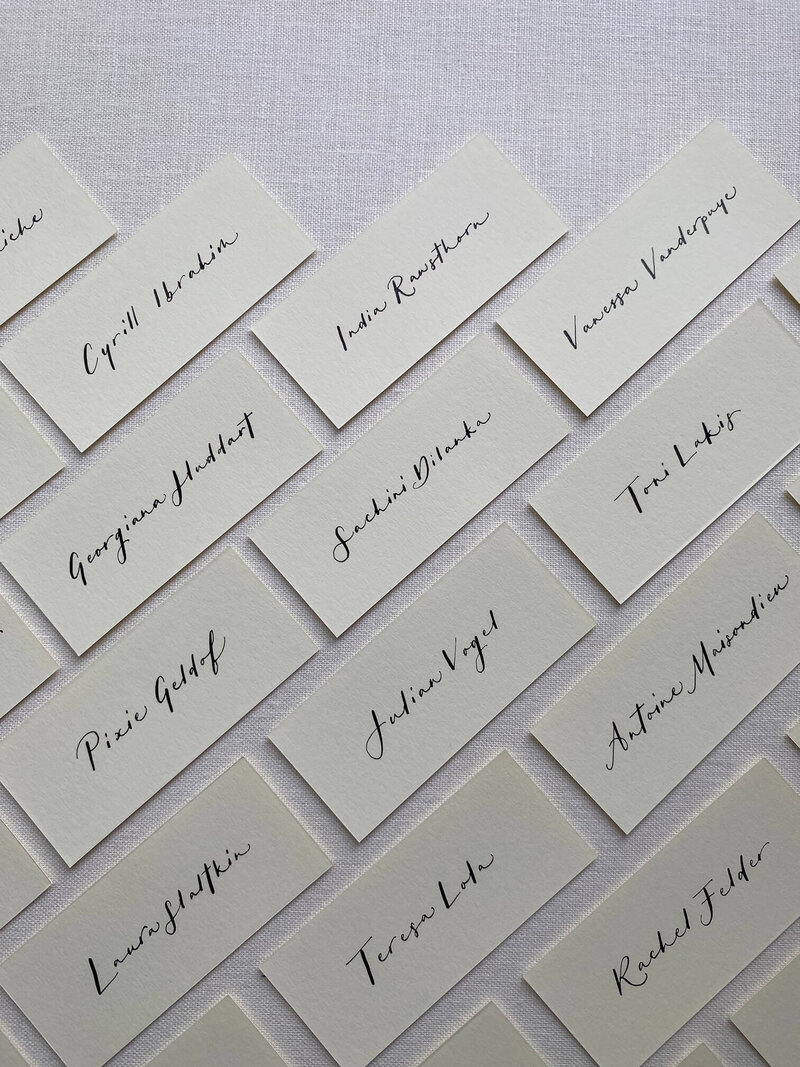 iche
Cyrill Ibrahim
India Rawsthorn
Vanessa Vanderpuye
Georgiana Huddart
Sachini Dilanka
Toni Lakis
Pixie Geldof
Julian Vogel
Antoine Maisondieu
Laura
Teresa Lola
Rachel Felder